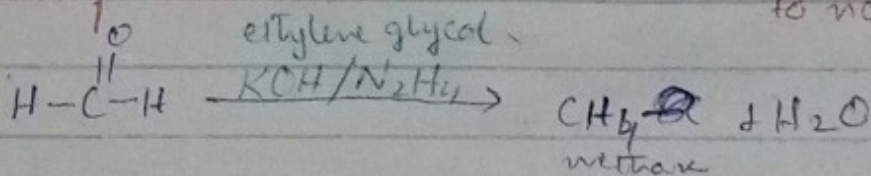 to no
O
ethylene glycol.
H-C-H KOH/N2H4 → CH4 + H2O
methane